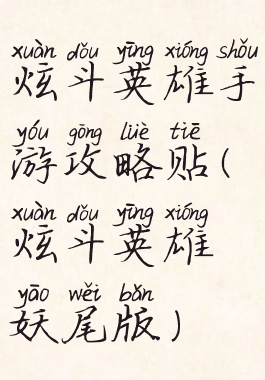 xuàn dǒu yīng xióng shǒu
炫斗英雄手
yóu gōng lüè tiē
游攻略贴(
xuàn dǒu yīng xióng
炫斗英雄
yāo wěi bǎn
妖尾版)